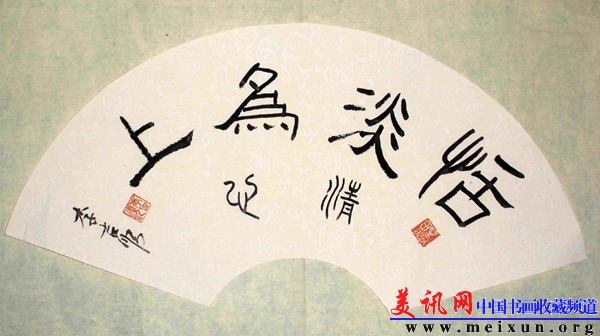 恬淡為上
清心
美讯网中国书画收藏频道
www.meixun.org